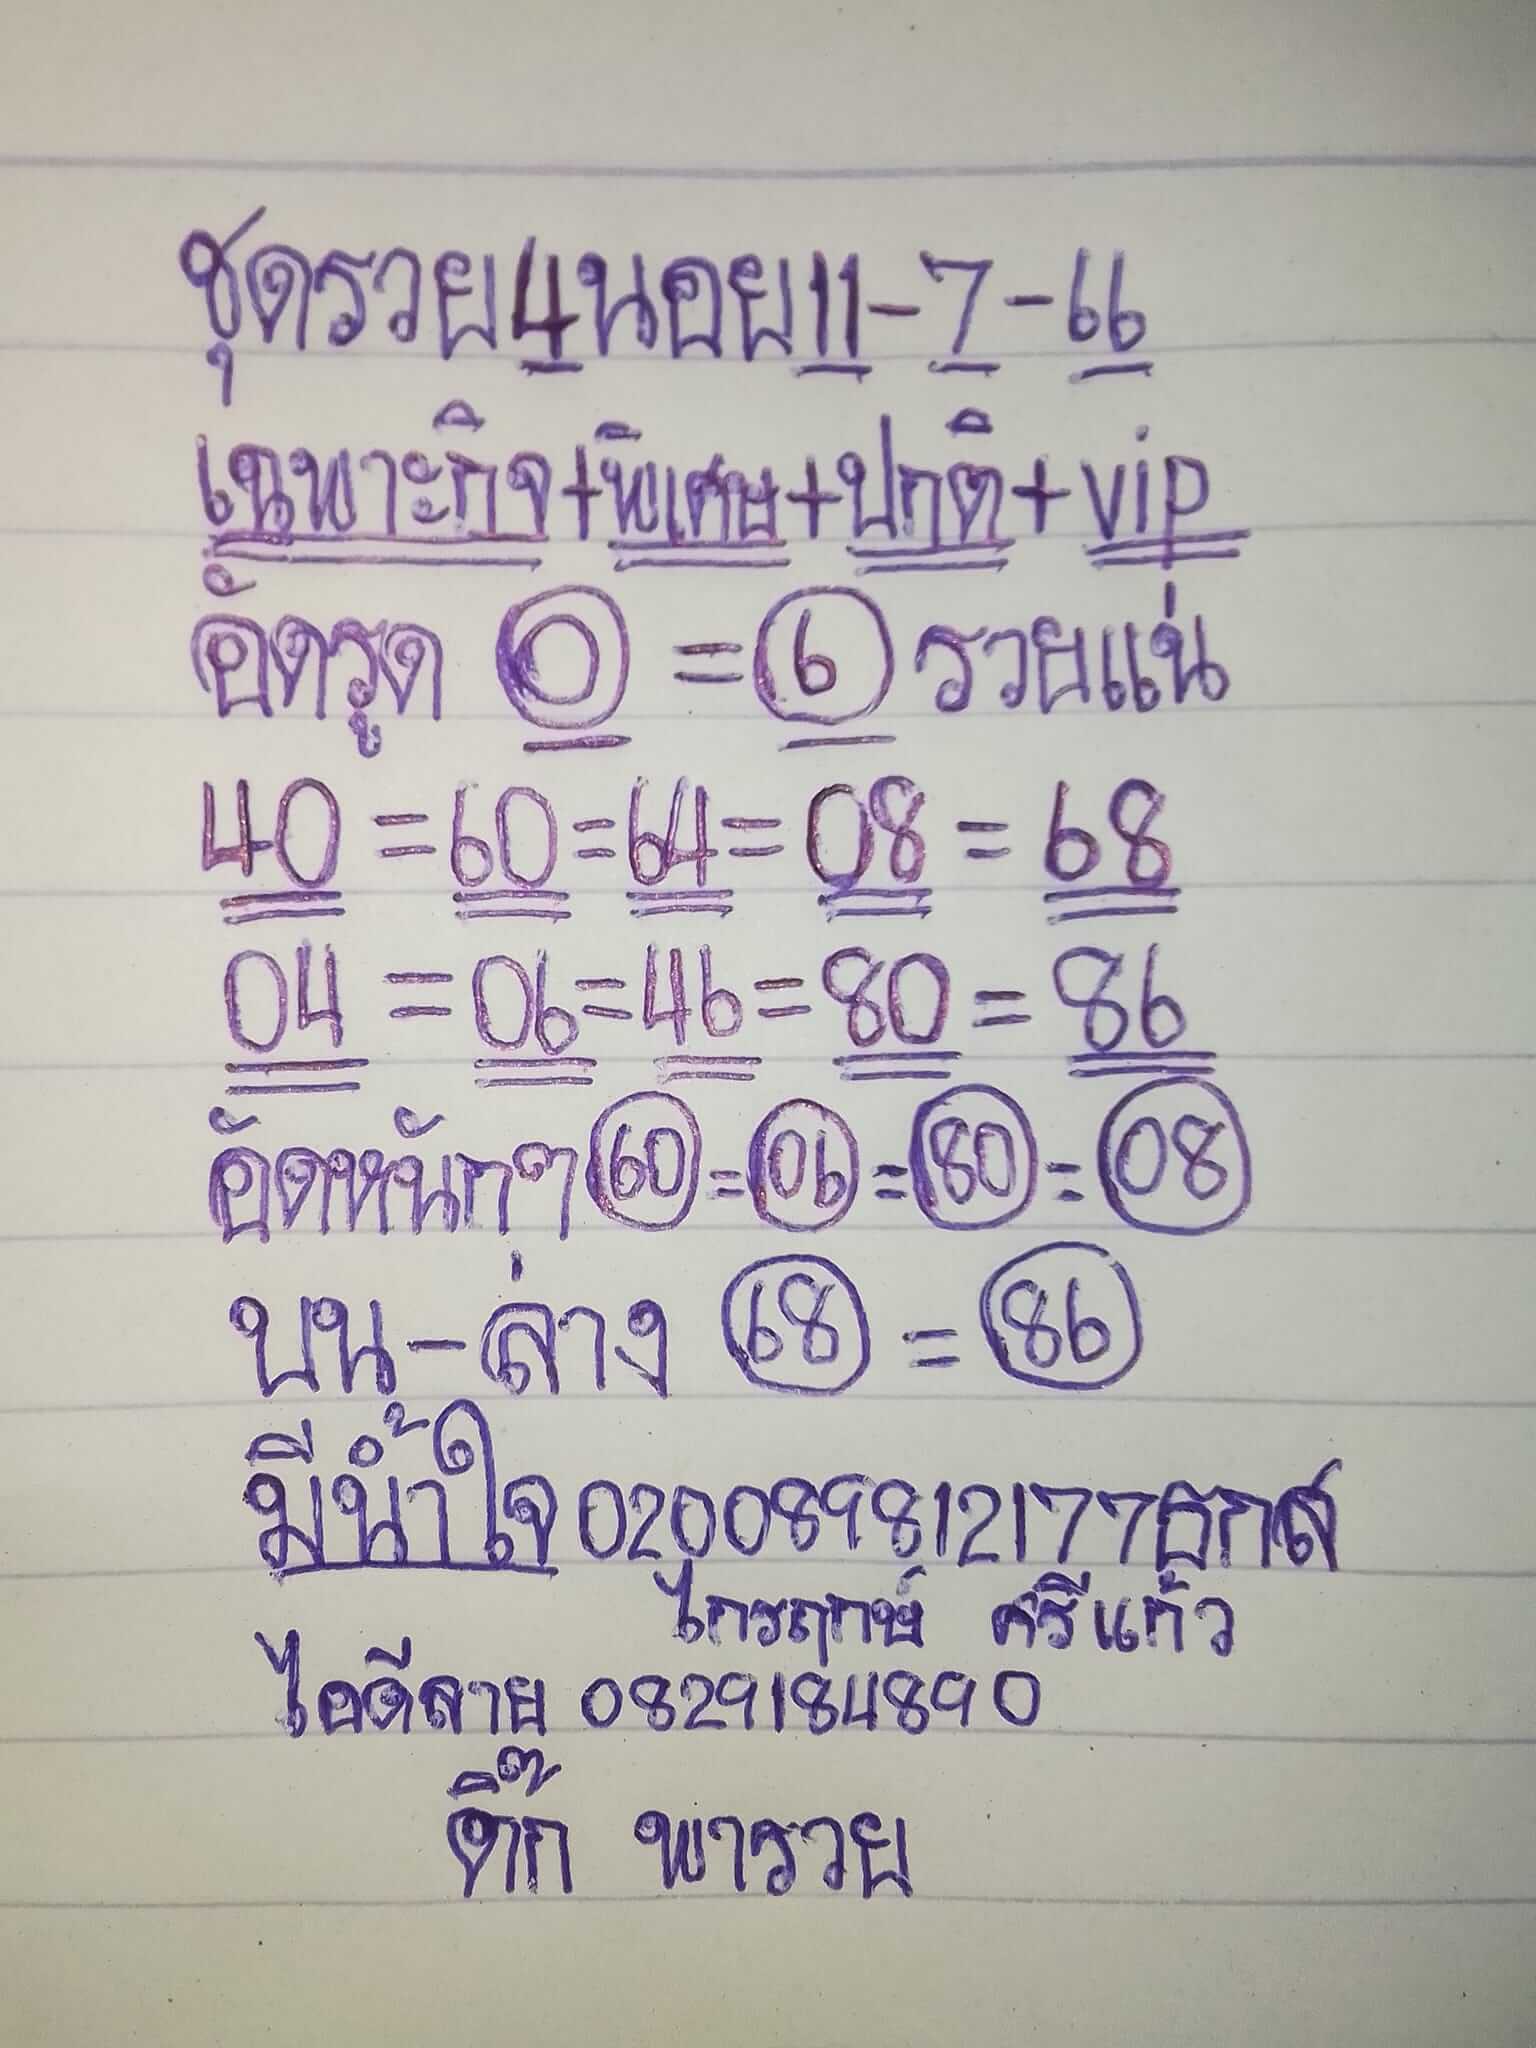 ชุดรวย4นอย11-7-66
เฉพาะกิจ+พิเศษ+ปกติ+vip
อัดรูด 0 = 6 รวยแน่
40 = 60 = 64 = 08 = 68
04 = 06 = 46 = 80 = 86
อัดหนักๆ 60 = 06 = 80 = 08
บน-ล่าง 68 = 86
มีน้ำใจ 020089812177ธกส
ไกรฤกษ์ ศรีแก้ว
ไอดีลาย 0829184890
ติ๊ก พารวย